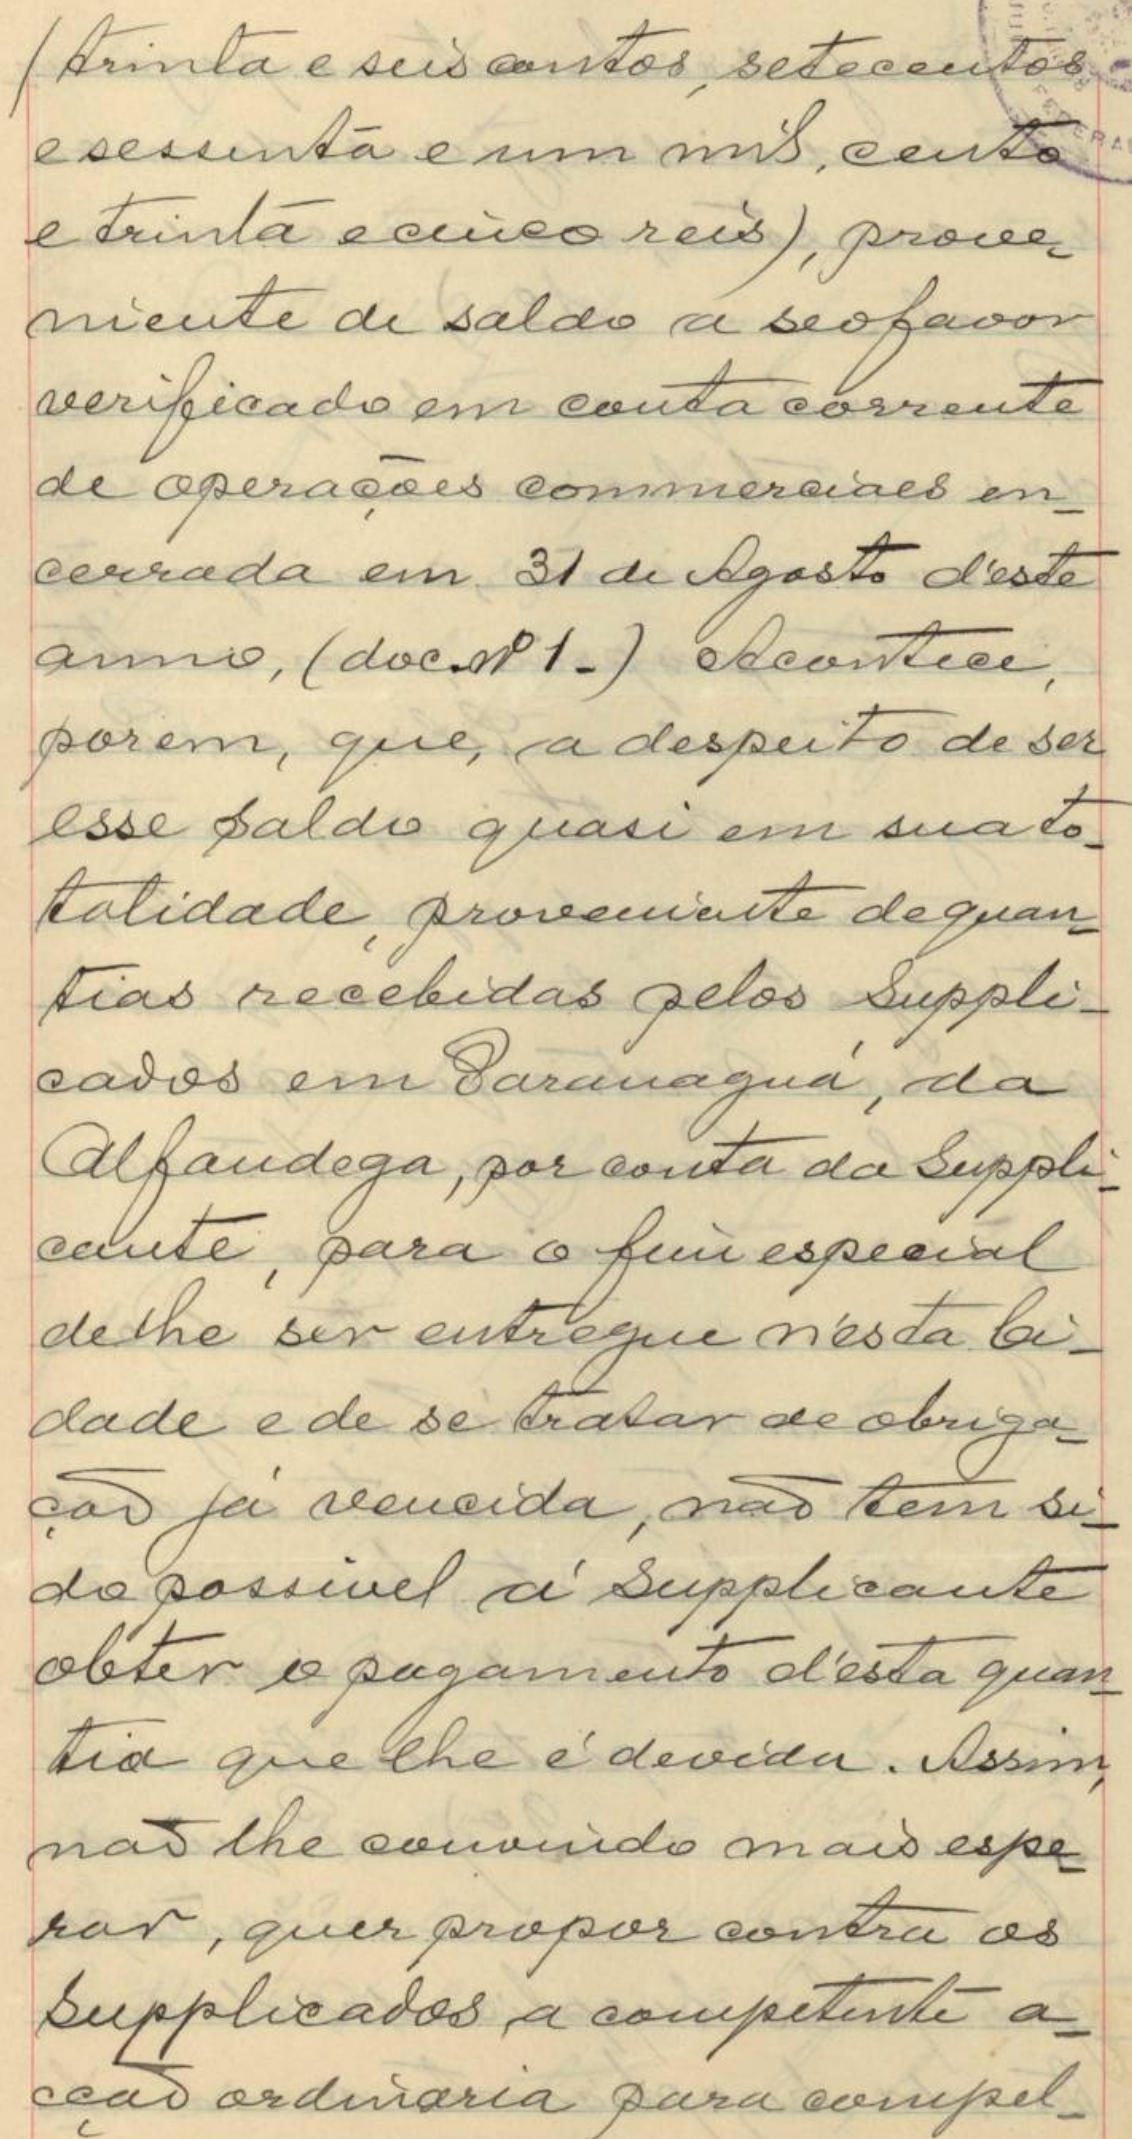 (trinta e seis contos, setecentos
e sessenta e um mil, cento
e trinta e cinco reis), prove-
niente de saldo a seo favor
verificado em conta corrente
de operações commerciaes en-
cerrada em 31 de Agosto d'este
anno, (doc. Nº 1-) Acontece,
porem, que, a despeito de ser
esse saldo quasi em sua to-
talidade, proveniente de quan-
tias recebidas pelos Suppli-
cados em Paranaguá, da
Alfandega, por conta da Suppli-
cante, para o fim especial
de lhe ser entregue n'esta Ci-
dade e de se tratar de obriga-
ção já vencida, não tem si-
do possivel á Supplicante
obter o pagamento d'esta quan-
tia que lhe é devida. Assim,
não lhe convindo mais espe-
rar, quer propor contra os
Supplicados a competente a-
cção ordinaria para compel-